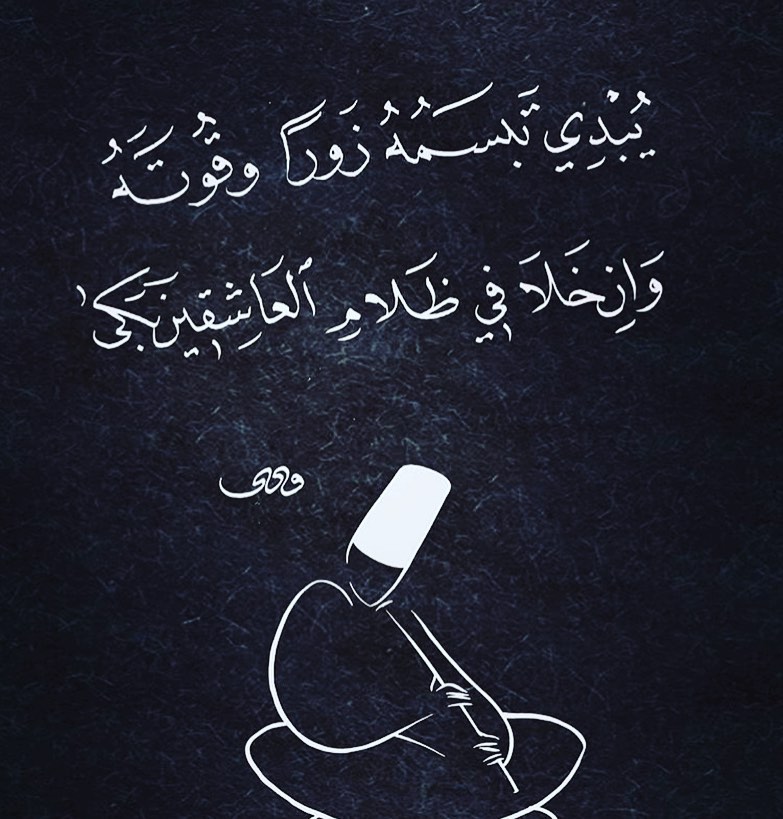 يُبْدِي تَبَسُمُهُ زَورًا وقُوتَهُ
وَإِن خَلَا فِي ظَلَامِ ٱلعَاشِقِين بَكَىٰ